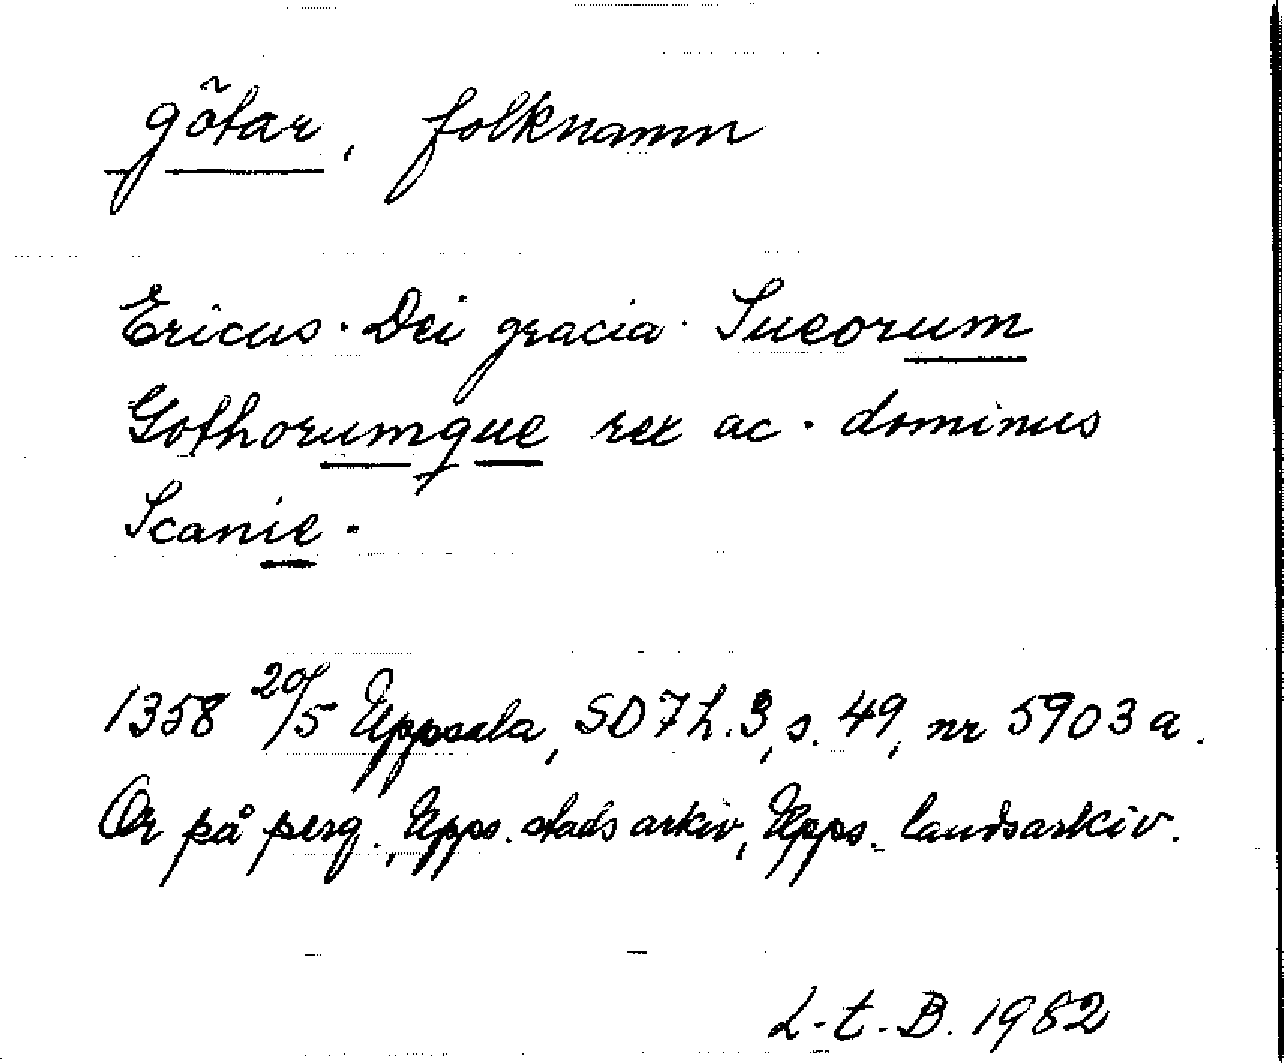 götar, folknamn
Ericus · Dei gracia · Sueorum
Gothorumque rex ac · dominus
Scanie ·
1358 20/5 Uppsala, SD 7 h. 3, s. 49, nr 5903 a.
Or på perg., Upps. stadsarkiv, Upps. landsarkiv.
L-t. B. 1982